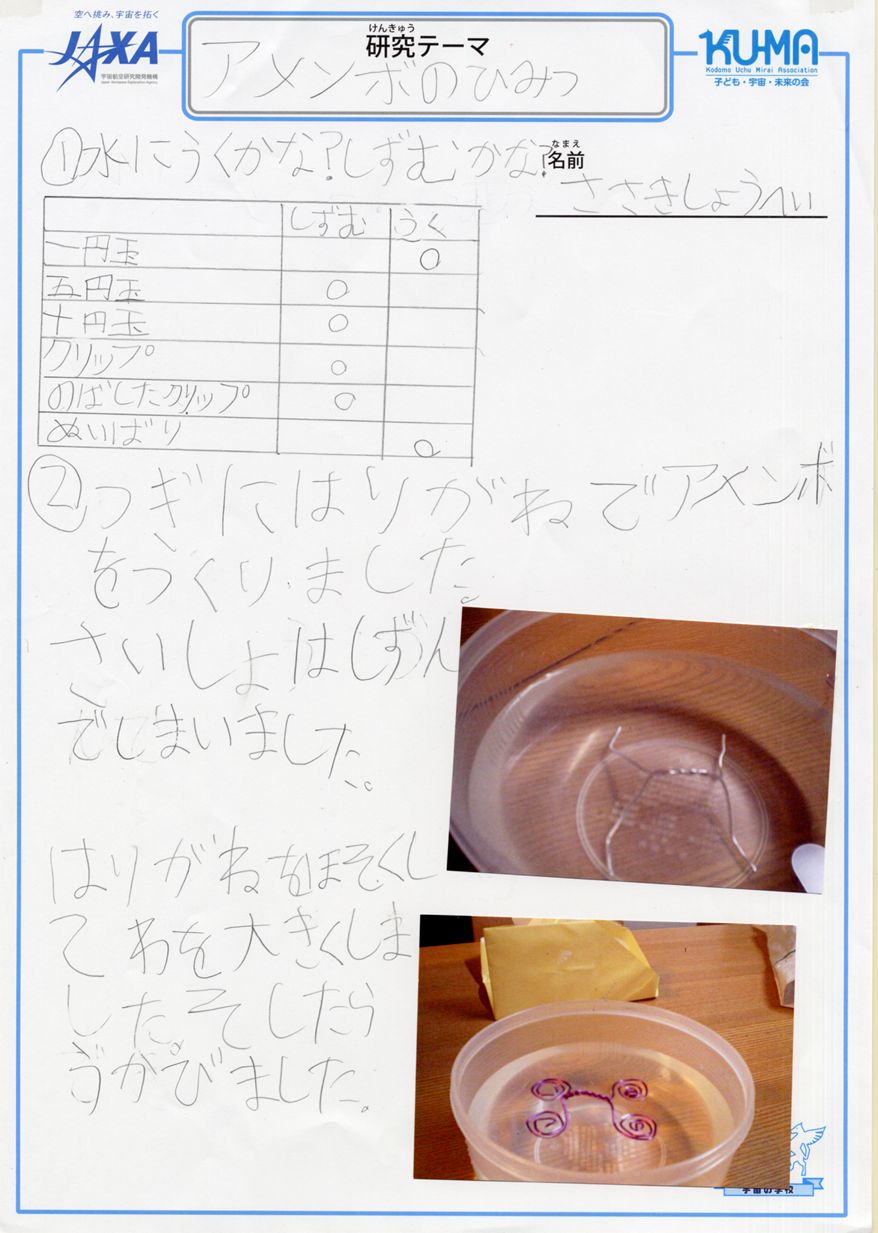 空へ挑み、宇宙を拓く
JAXA
宇宙航空研究開発機構
Japan Aerospace Exploration Agency
けんきゅう
研究テーマ
アメンボのひみつ
KU-MA
Kodomo Uchu Mirai Association
子ども・宇宙・未来の会
①水にうくかな?しずむかな?
なまえ
名前
ささきしょうへい
しずむ うく
一円玉 ○
五円玉 ○
十円玉 ○
クリップ ○
のばしたクリップ ○
ぬいばり ○
②つぎにはりがねでアメンボ
をつくりました。
さいしょはしずん
でしまいました。
はりがねをほそくし
てわを大きくしま
した。そしたら
うかびました。
宇宙の学校